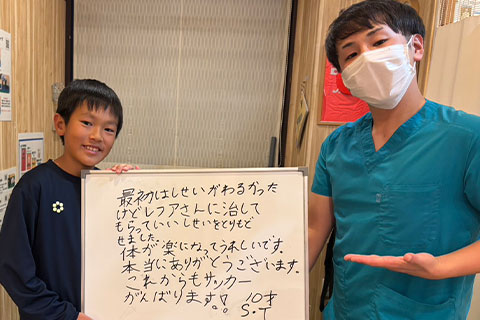 最初はしせいがわるかった
けどレフアさんに治して
もらっていいしせいをとりもど
せました。
体が楽になってうれしいです。
本当にありがとうございます。
これからもサッカー
がんばります!! 10才
S・T